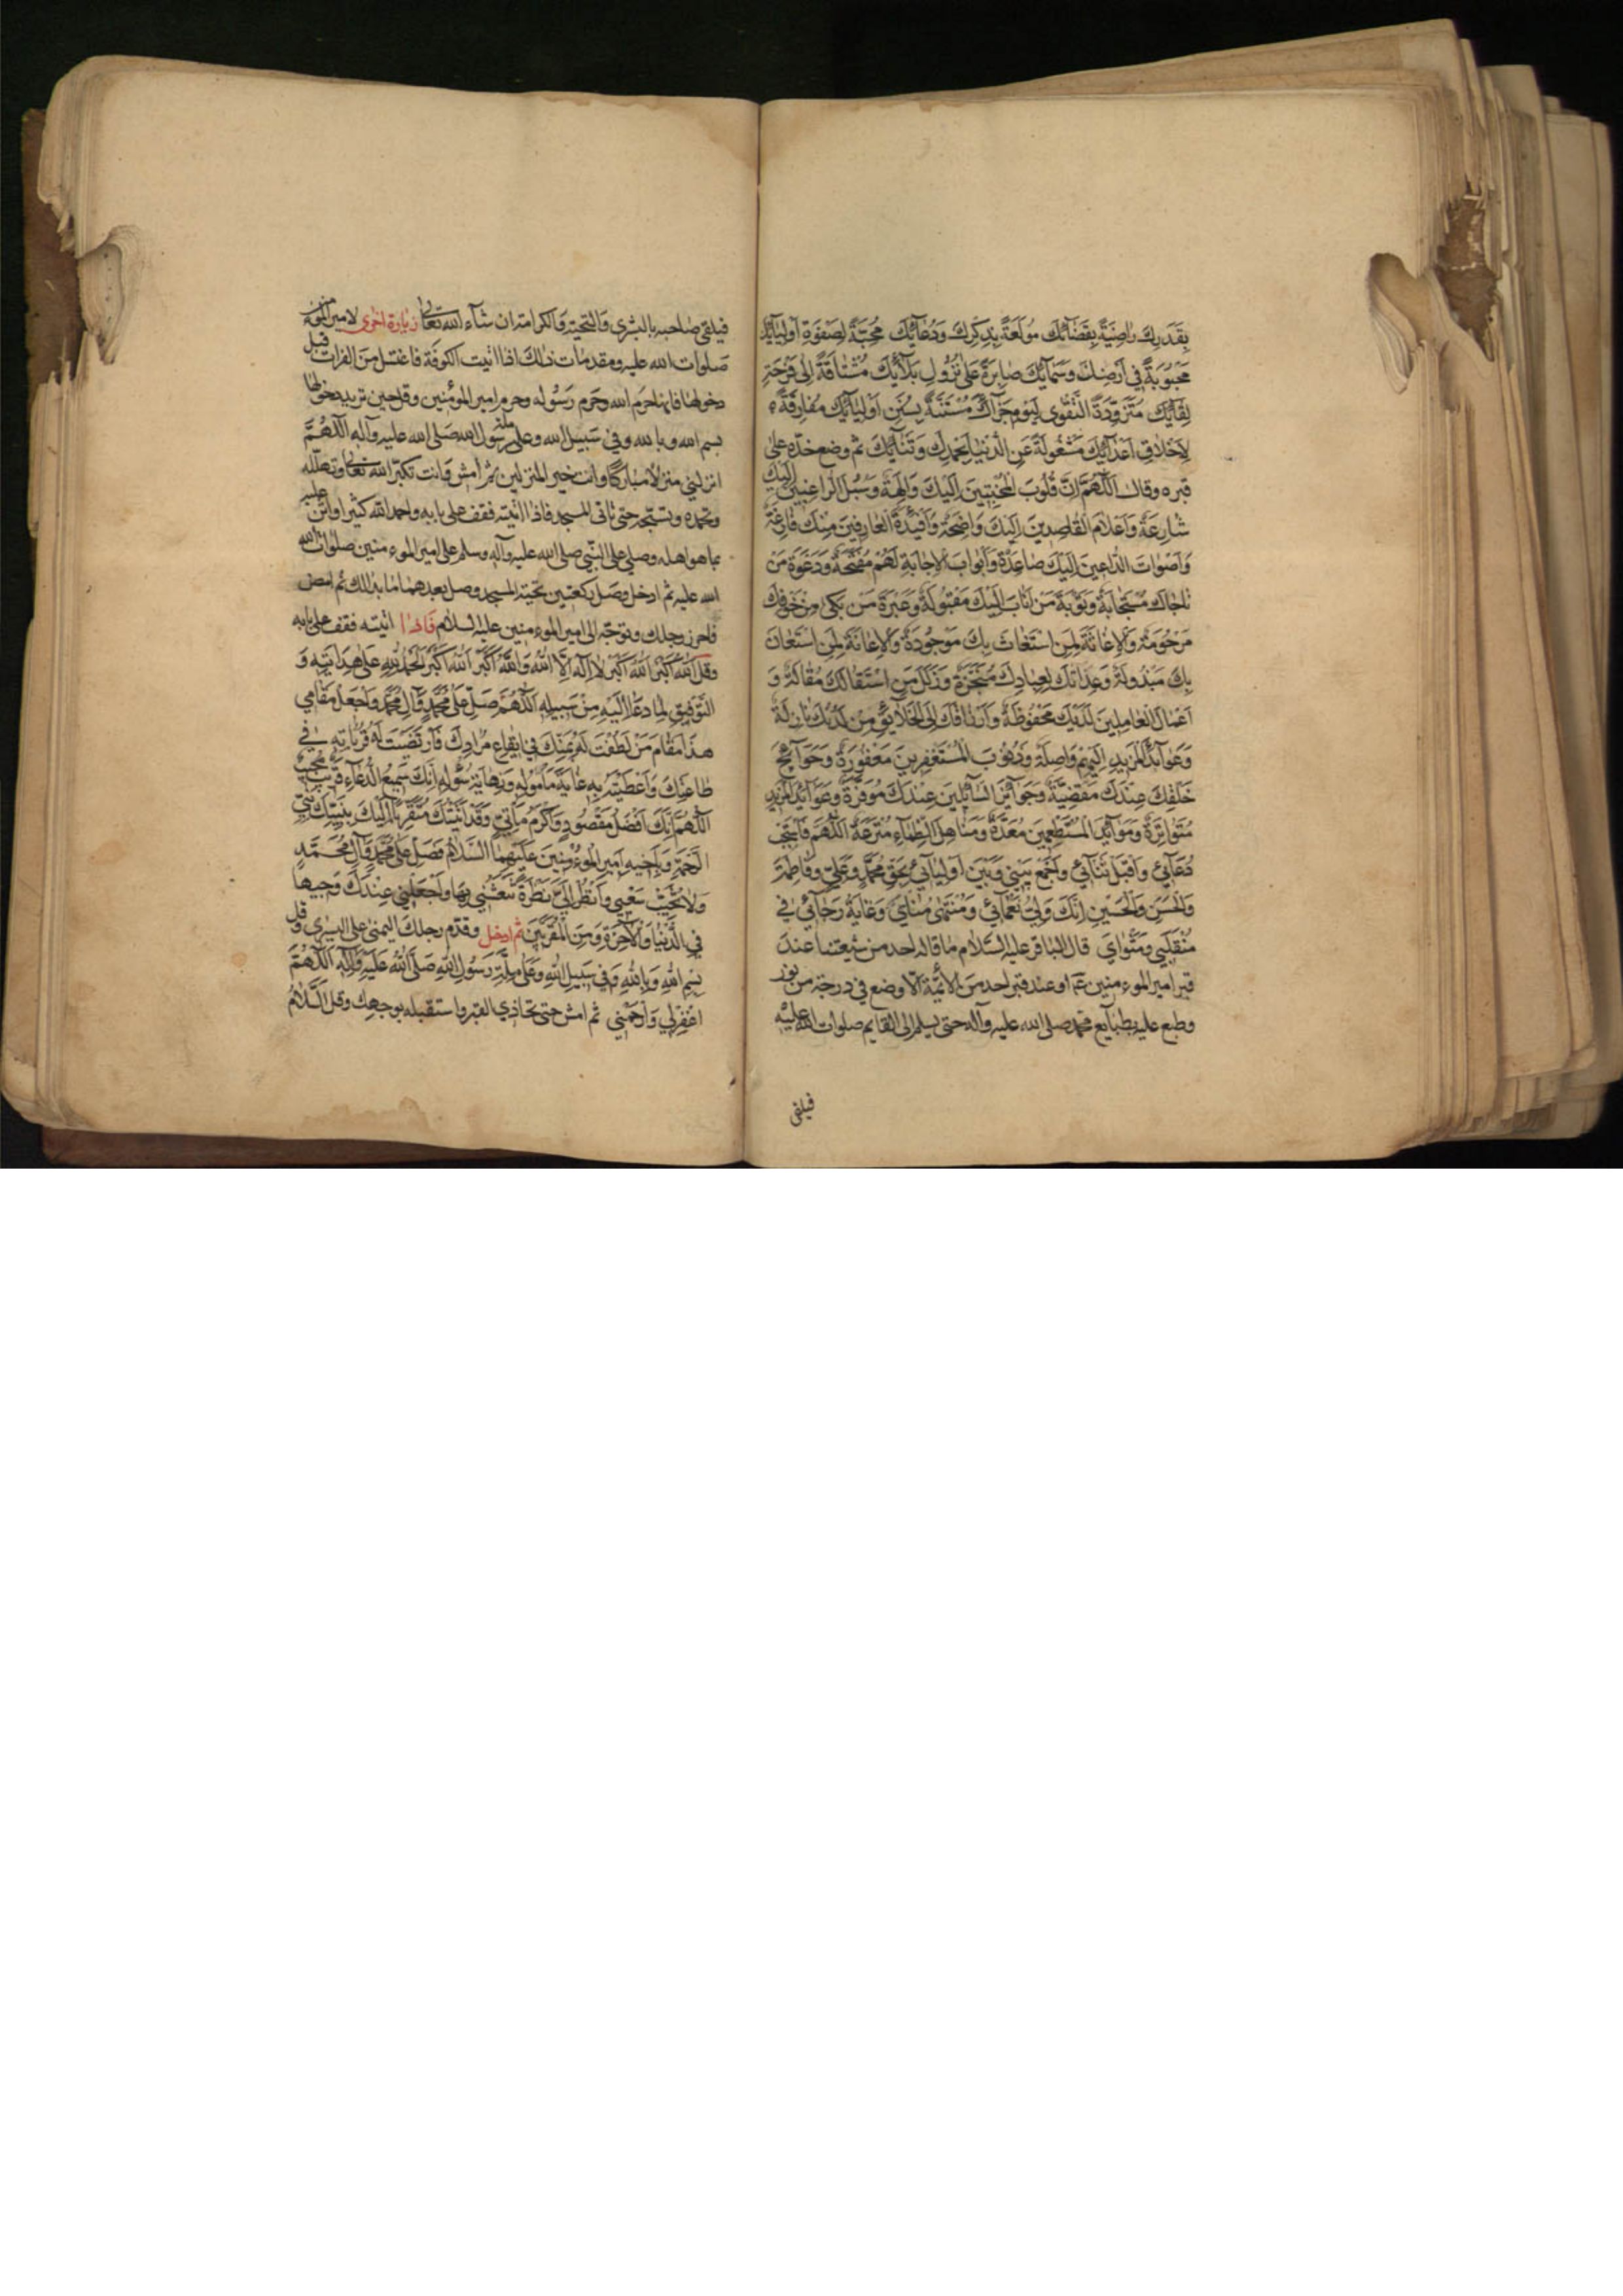 بِقَدَرِكَ رَاضِيَةً بِقَضَائِكَ مُولَعَةً بِذِكْرِكَ وَدُعَائِكَ مُحِبَّةً لِصَفْوَةِ اَوْلِيَائِكَ
مَحْبُوبَةً فِي اَرْضِكَ وَسَمَائِكَ صَابِرَةً عَلى نُزُولِ بَلَائِكَ مُشْتَاقَةً اِلى فَرْحَةِ
لِقَائِكَ مُتَزَوِّدَةً التَّقْوى لِيَوْمِ جَزَائِكَ مُسْتَنَّةً بِسُنَنِ اَوْلِيَائِكَ مُفَارِقَةً
لِاَخْلَاقِ اَعْدَائِكَ مَشْغُولَةً عَنِ الدُّنْيَا بِحَمْدِكَ وَثَنَائِكَ ثم وضع خدّه على
قبره وقال اَللّهُمَّ اِنَّ قُلُوبَ الْمُخْبِتِينَ اِلَيْكَ وَالِهَةٌ وَسُبُلَ الرَّاغِبِينَ اِلَيْكَ
شَارِعَةٌ وَاَعْلَامَ الْقَاصِدِينَ اِلَيْكَ وَاضِحَةٌ وَاَفْئِدَةَ الْعَارِفِينَ مِنْكَ فَازِعَةٌ
وَاَصْوَاتَ الدَّاعِينَ اِلَيْكَ صَاعِدَةٌ وَاَبْوَابَ الْاِجَابَةِ لَهُمْ مُفَتَّحَةٌ وَدَعْوَةَ مَنْ
نَاجَاكَ مُسْتَجَابَةٌ وَتَوْبَةَ مَنْ اَنَابَ اِلَيْكَ مَقْبُولَةٌ وَعَبْرَةَ مَنْ بَكى مِنْ خَوْفِكَ
مَرْحُومَةٌ وَالْاِغَاثَةَ لِمَنِ اسْتَغَاثَ بِكَ مَوْجُودَةٌ وَالْاِعَانَةَ لِمَنِ اسْتَعَانَ
بِكَ مَبْذُولَةٌ وَعِدَاتَكَ لِعِبَادِكَ مُنْجَزَةٌ وَزَلَلَ مَنِ اسْتَقَالَكَ مُقَالَةٌ وَ
اَعْمَالَ الْعَامِلِينَ لَدَيْكَ مَحْفُوظَةٌ وَاَرْزَاقَكَ اِلَى الْخَلَائِقِ مِنْ لَدُنْكَ نَازِلَةٌ
وَعَوَائِدَ الْمَزِيدِ اِلَيْهِمْ وَاصِلَةٌ وَذُنُوبَ الْمُسْتَغْفِرِينَ مَغْفُورَةٌ وَحَوَائِجَ
خَلْقِكَ عِنْدَكَ مَقْضِيَّةٌ وَجَوَائِزَ السَّائِلِينَ عِنْدَكَ مُوَفَّرَةٌ وَعَوَائِدَ الْمَزِيدِ
مُتَوَاتِرَةٌ وَمَوَائِدَ الْمُسْتَطْعِمِينَ مُعَدَّةٌ وَمَنَاهِلَ الظِّمَاءِ مُتْرَعَةٌ اَللّهُمَّ فَاسْتَجِبْ
دُعَائِي وَاقْبَلْ ثَنَائِي وَاجْمَعْ بَيْنِي وَبَيْنَ اَوْلِيَائِي بِحَقِّ مُحَمَّدٍ وَعَلِيٍّ وَفَاطِمَةَ
وَالْحَسَنِ وَالْحُسَيْنِ اِنَّكَ وَلِيُّ نَعْمَائِي وَمُنْتَهى مُنَايَ وَغَايَةُ رَجَائِي فِي
مُنْقَلَبِي وَمَثْوَايَ قال الباقر عليه السّلام ما قاله احد من شيعتنا عند
قبر امير الموءمنين ع او عند قبر احد من الأئمّة الّا وضع في درجة من نور
وطبع عليه بطابع محمّد صلى الله عليه وآله حتى يسلم الى القايم صلوات الله عليه
فيلقى
فيلقى صاحبه بالبشرى والتحية والكرامة ان شآء الله تعالى زيارة اخرى لامير المؤمنين
صلوات الله عليه ومقدمات ذلك اذا اتيت الكوفة فاغتسل من الفرات قبل
دخولها فانها حرم الله وحرم رسوله وحرم امير المؤمنين وقل حين تريد دخولها
بسم الله وبالله وفي سبيل الله وعلى ملة رسول الله صلى الله عليه وآله اللّهُمَّ
انزلني منزلا مباركا وانت خير المنزلين ثم امش وانت تكبّر الله تعالى وتهلّله
وتحمده وتسبّحه حتى تاتي المسجد فاذا اتيته فقف على بابه واحمد الله كثيرا واثن عليه
بما هو اهله وصلي على النّبي صلى الله عليه وآله وسلم على امير الموءمنين صلوات الله
الله عليه ثم ادخل وصل ركعتين تحية المسجد وصل بعدهما ما بدا لك ثم امض
فاحرز رجلك وتوجّه الى امير الموءمنين عليه السلام فاذا اتيته فقف على بابه
وقل اَللهُ اَكْبَرُ اَللهُ اَكْبَرُ لَا اِلهَ اِلَّا اللهُ وَاللهُ اَكْبَرُ اَللهُ اَكْبَرُ اَلْحَمْدُ لِلّهِ عَلى هِدَايَتِهِ وَ
التَّوْفِيقِ لِمَا دَعَا اِلَيْهِ مِنْ سَبِيلِهِ اَللّهُمَّ صَلِّ عَلى مُحَمَّدٍ وَآلِ مُحَمَّدٍ وَاجْعَلْ مَقَامِي
هذَا مَقَامَ مَنْ لَطُفْتَ لَهُ بِمَنِّكَ فِي اِيقَاعِ مُرَادِكَ فَارْتَضَيْتَ لَهُ قُرُبَاتِهِ فِي
طَاعَتِكَ وَاَعْطَيْتَهُ بِهِ غَايَةَ مَأْمُولِهِ وَنِهَايَةَ سُؤْلِهِ اِنَّكَ سَمِيعُ الدُّعَاءِ قَرِيبٌ مُجِيبٌ
اَللّهُمَّ اِنَّكَ اَفْضَلُ مَقْصُودٍ وَاَكْرَمُ مَأْتِيٍّ وَقَدْ اَتَيْتُكَ مُتَقَرِّبًا اِلَيْكَ بِنَبِيِّكَ نَبِيِّ
الرَّحْمَةِ وَبِاَخِيهِ اَمِيرِ الْمُوءْمِنِينَ عَلَيْهِمَا السَّلَامُ فَصَلِّ عَلى مُحَمَّدٍ وَآلِ مُحَمَّدٍ
وَلَا تُخَيِّبْ سَعْيِي وَانْظُرْ اِلَيَّ نَظْرَةً تَنْعَشُنِي بِهَا وَاجْعَلْنِي عِنْدَكَ وَجِيهًا
فِي الدُّنْيَا وَالْآخِرَةِ وَمِنَ الْمُقَرَّبِينَ ثم ادخل وقدّم رجلك اليمنى على اليسرى وقل
بِسْمِ اللهِ وَبِاللهِ وَفِي سَبِيلِ اللهِ وَعَلى مِلَّةِ رَسُولِ اللهِ صَلَّى اللهُ عَلَيْهِ وَآلِهِ اَللّهُمَّ
اغْفِرْ لِي وَارْحَمْنِي ثم امش حتى تحاذي القبر واستقبله بوجهك وقل اَلسَّلَامُ